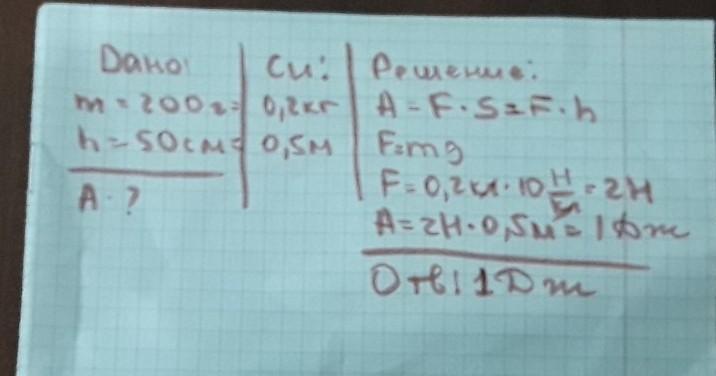 Дано:
m = 200г=
h = 50см=
А - ?
Си:
0,2кг
0,5м
Решение:
A = F · S = F · h
F=mg
F = 0,2кг · 10 Н/кг = 2Н
A = 2Н · 0,5м = 1Дж
Отв: 1Дж